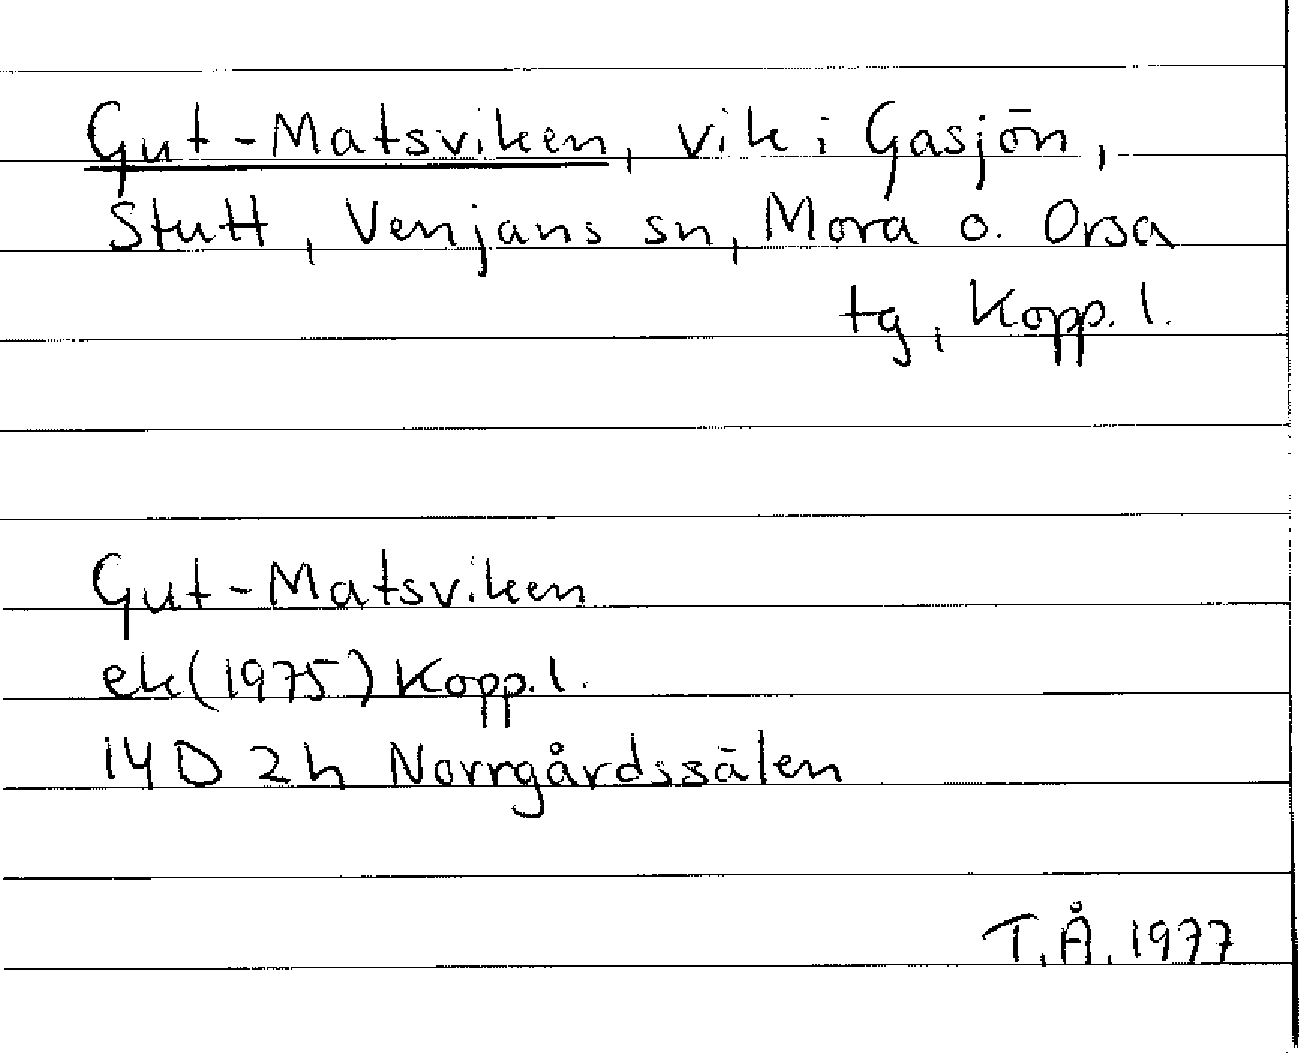 Gut-Matsviken, vik i Gasjön,
Stutt, Venjans sn, Mora o. Orsa
tg, Kopp. l.
Gut-Matsviken
ek(1975) Kopp. l.
14D 2h Norrgårdssälen
T.Å. 1977